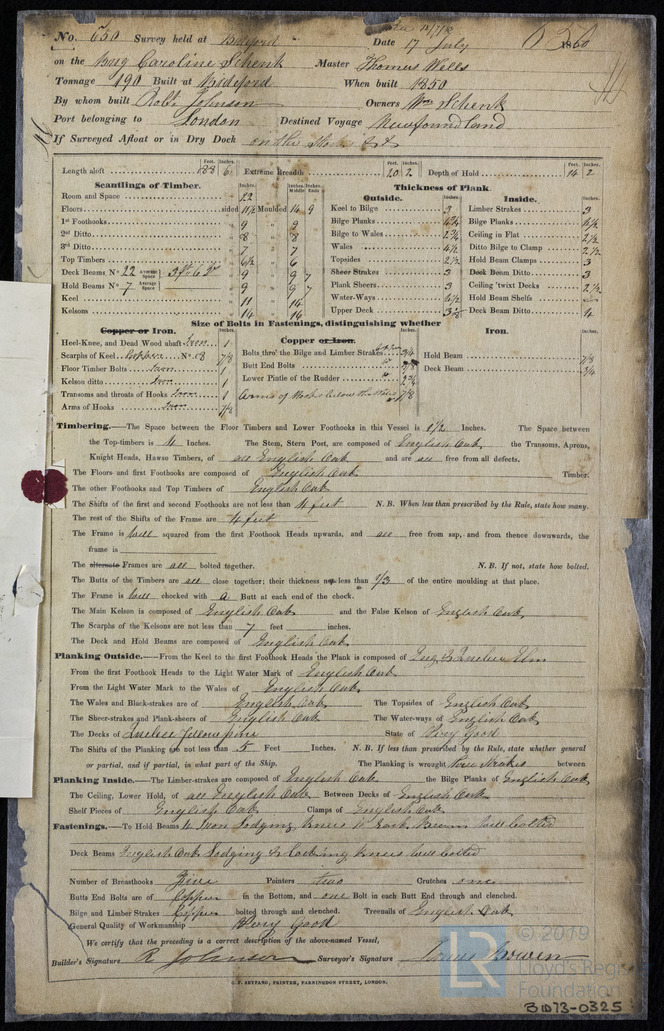 No. 650 Survey held at Bideford Date 17 July 1850
on the Brig Caroline Schenk Master Thomas Wells
Tonnage 190 Built at Bideford When built 1850
By whom built Robt Johnson Owners Wm Schenk
Port belonging to London Destined Voyage Newfoundland
If Surveyed Afloat or in Dry Dock on the Stocks
Feet. Inches. Feet. Inches. Feet. Inches.
Length aloft 88 6 Extreme Breadth 20 2 Depth of Hold 14 2
Scantlings of Timber. Thickness of Plank.
Inches. Inches. Middle Inches. Ends Outside. Inches. Inside. Inches.
Room and Space 22 Keel to Bilge 3 Limber Strakes 3
Floors sided 11½ Moulded 14 9 Bilge Planks Bilge Planks 4½
1st Foothooks 9 9 Bilge to Wales 2¾ Ceiling in Flat 2½
2nd Ditto 8 8 Wales 4½ Ditto Bilge to Clamp 2½
3rd Ditto 7 7 Topsides 2½ Hold Beam Clamps 3
Top Timbers 6½ 6 Sheer Strakes 3 Deck Beam Ditto 3
Deck Beams No 22 Average Space 3ft 6in 9 9 7 Plank Sheers 3 Ceiling 'twixt Decks 2½
Hold Beams No 7 Average Space 9 9 7 Water-Ways Hold Beam Shelfs
Keel 11 14 Upper Deck Deck Beam Ditto 4
Kelsons 14 14
Size of Bolts in Fastenings, distinguishing whether
Copper or Iron. Copper or Iron. Iron.
Heel-Knee, and Dead Wood abaft Iron 1
Scarphs of Keel Copper No 8 7/8 Bolts thro' the Bilge and Limber Strakes Copper 3/4 Hold Beam 7/8
Floor Timber Bolts Iron 1 Butt End Bolts " Deck Beam 3/4
Kelson ditto Iron 1 Lower Pintle of the Rudder " 2¼
Transoms and throats of Hooks Iron 1 Arms of Hooks below the Wales 7/8
Arms of Hooks Iron 7/8
Timbering.—The Space between the Floor Timbers and Lower Foothooks in this Vessel is 1½ Inches. The Space between
the Top-timbers is 4 Inches. The Stem, Stern Post, are composed of English Oak the Transoms, Aprons,
Knight Heads, Hawse Timbers, of all English Oak and are all free from all defects.
The Floors and first Foothooks are composed of English Oak Timber.
The other Foothooks and Top Timbers of English Oak
The Shifts of the first and second Foothooks are not less than 4 feet N.B. When less than prescribed by the Rule, state how many.
The rest of the Shifts of the Frame are 4 feet
The Frame is well squared from the first Foothook Heads upwards, and all free from sap, and from thence downwards, the
frame is
The alternate Frames are all bolted together. N.B. If not, state how bolted.
The Butts of the Timbers are all close together; their thickness not less than 1/3 of the entire moulding at that place.
The Frame is well chocked with a Butt at each end of the chock.
The Main Kelson is composed of English Oak and the False Kelson of English Oak
The Scarphs of the Kelsons are not less than 7 feet inches.
The Deck and Hold Beams are composed of English Oak
Planking Outside.—From the Keel to the first Foothook Heads the Plank is composed of Eng. & Quebec Elm
From the first Foothook Heads to the Light Water Mark of English Oak
From the Light Water Mark to the Wales of English Oak
The Wales and Black-strakes are of English Oak The Topsides of English Oak
The Sheer-strakes and Plank-sheers of English Oak The Water-ways of English Oak
The Decks of Quebec Yellow pine State of Very Good
The Shifts of the Planking are not less than 5 Feet Inches. N.B. If less than prescribed by the Rule, state whether general
or partial, and if partial, in what part of the Ship. The Planking is wrought three Strakes between
Planking Inside.—The Limber-strakes are composed of English Oak the Bilge Planks of English Oak
The Ceiling, Lower Hold, of all English Oak Between Decks of English Oak
Shelf Pieces of English Oak Clamps of English Oak
Fastenings.—To Hold Beams 4 Iron Lodging Knees to Each Beam well bolted
Deck Beams English Oak Lodging & Iron Knees well bolted
Number of Breasthooks Five Pointers two Crutches one
Butts End Bolts are of Copper in the Bottom, and one Bolt in each Butt End through and clenched.
Bilge and Limber Strakes Copper bolted through and clenched. Treenails of English Oak
General Quality of Workmanship Very Good
We certify that the preceding is a correct description of the above-named Vessel,
Builder's Signature R Johnson Surveyor's Signature Bowen
C. F. SEYFANG, PRINTER, FARRINGDON STREET, LONDON.
© 2019
LR Lloyd's Register
Foundation
BID73-0325